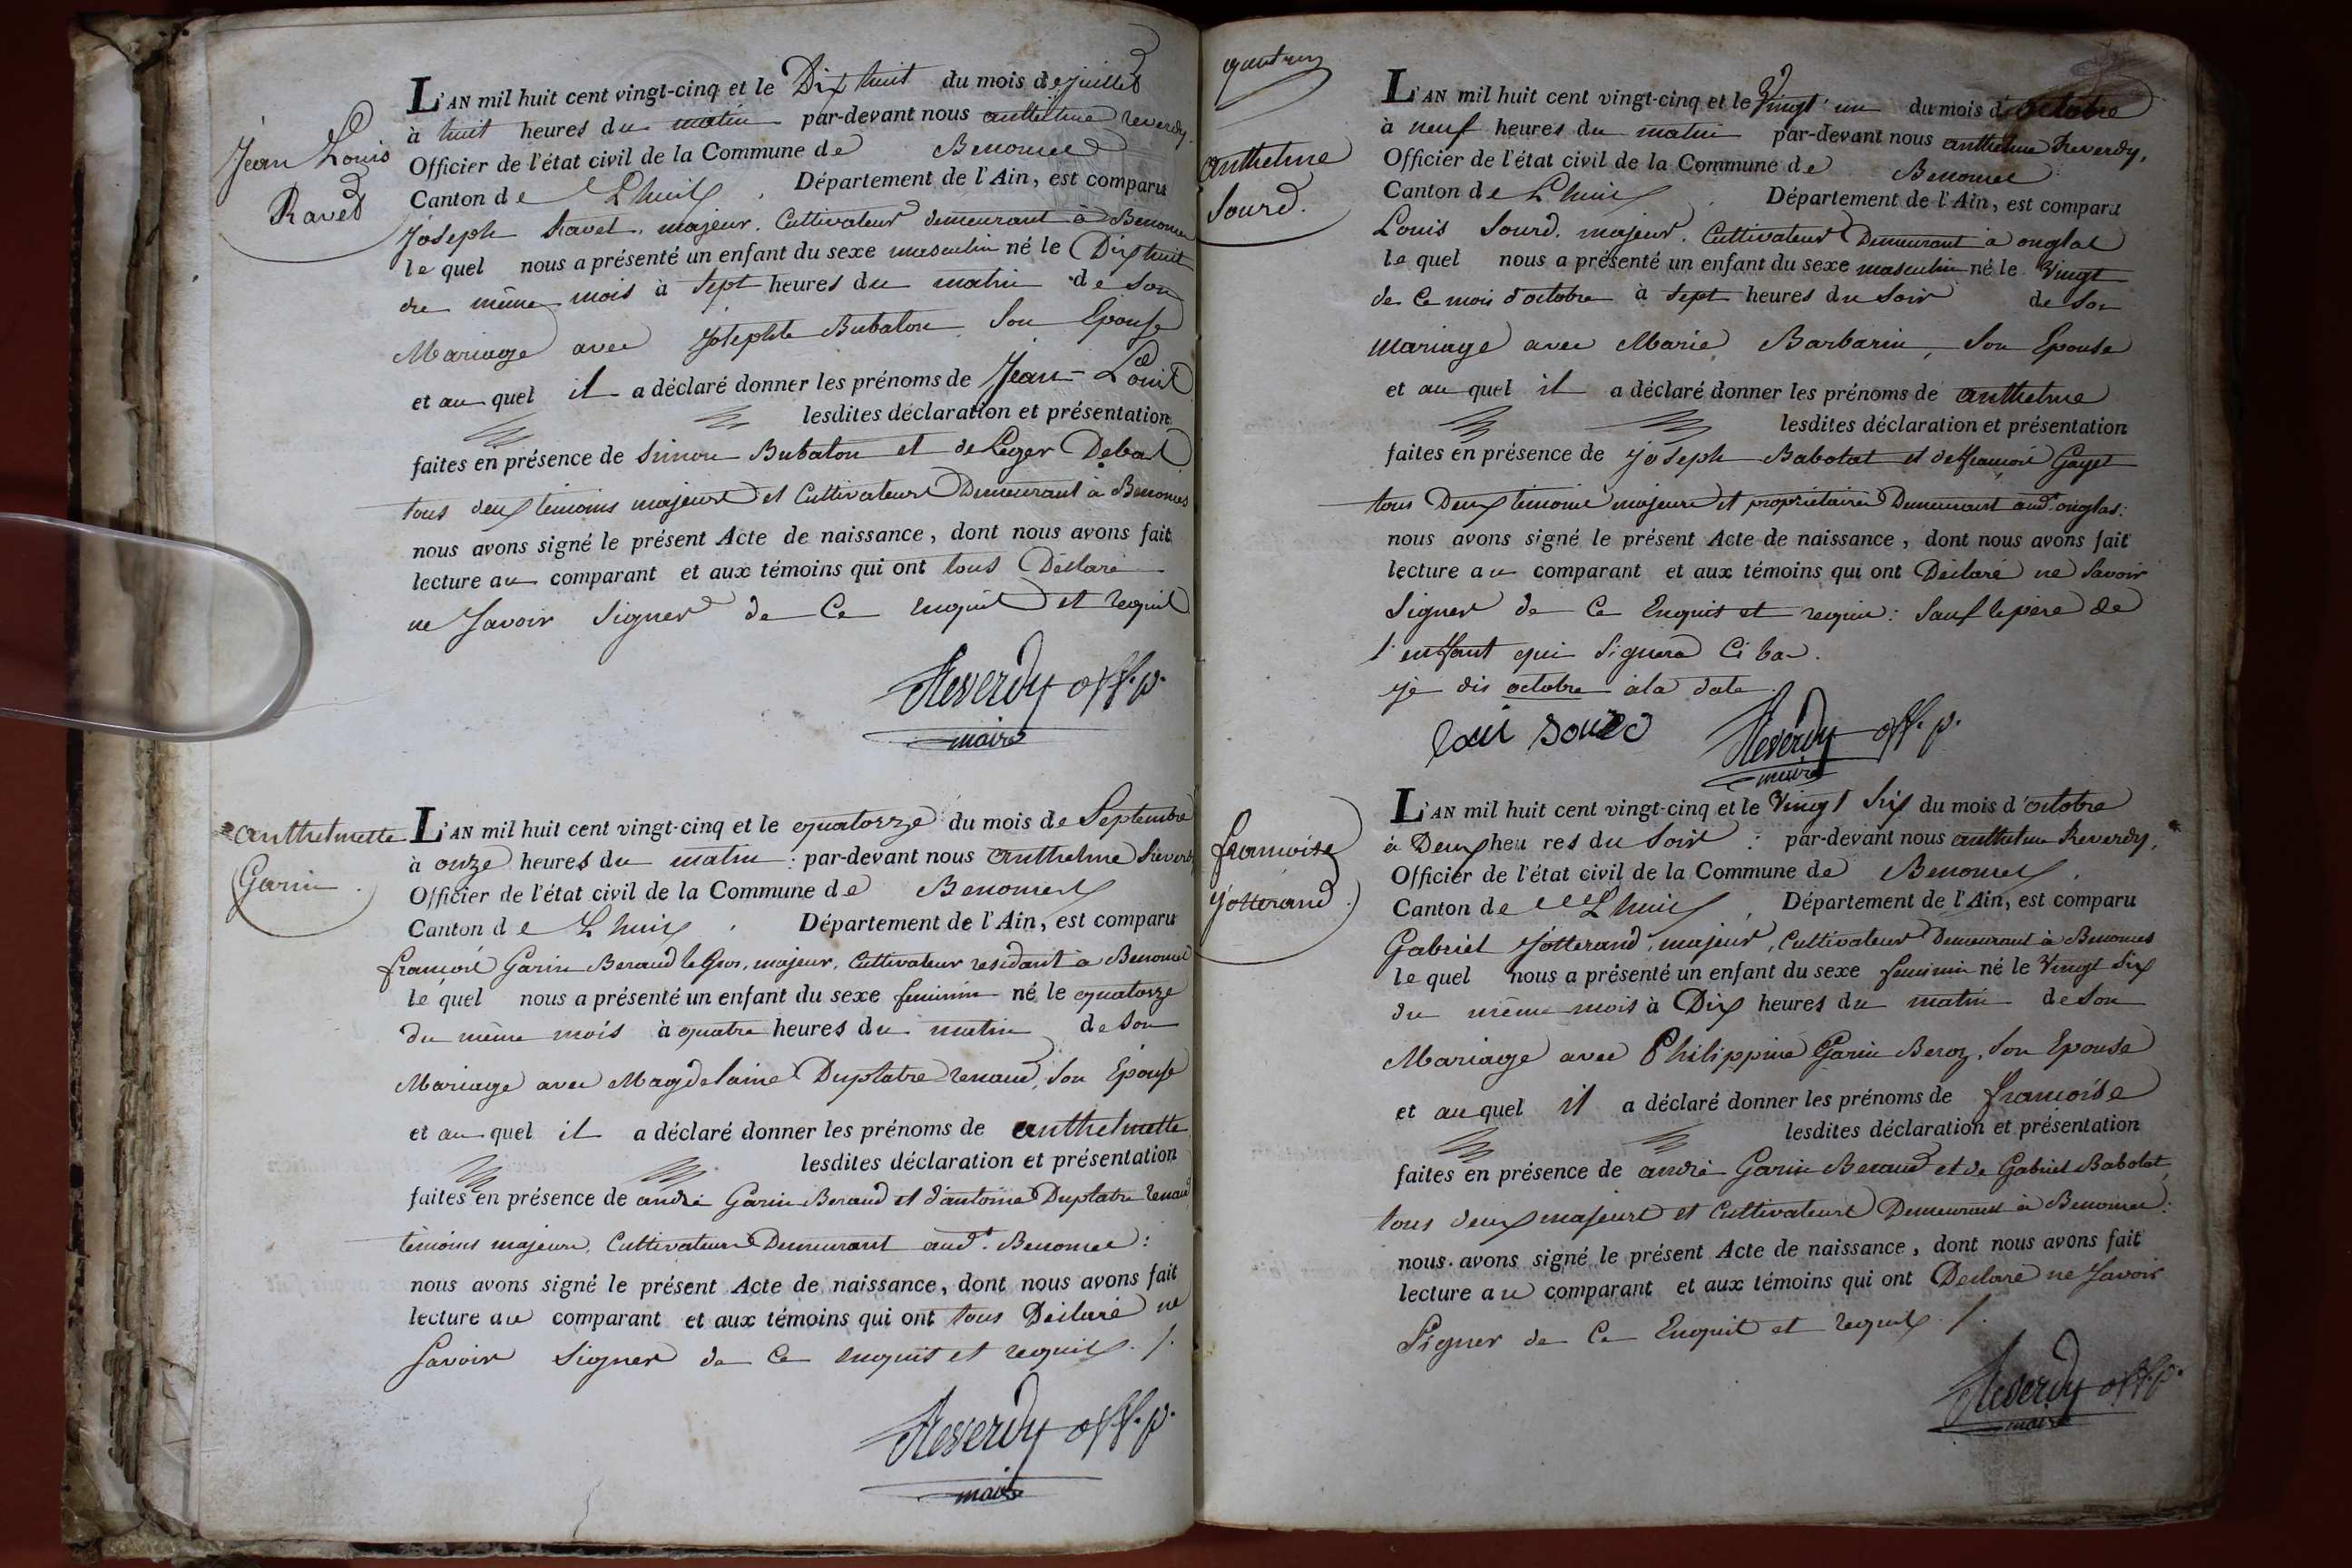 Jean Louis
Ravet
L'AN mil huit cent vingt-cinq et le Dix huit du mois de juillet
à huit heures du matin par-devant nous anthelme reverdy.
Officier de l'état civil de la Commune de Benonces
Canton de Lhuis, Département de l'Ain, est comparu
Joseph Ravet, majeur, Cultivateur demeurant à Benonces
le quel nous a présenté un enfant du sexe masculin né le Dix huit
du même mois à sept heures du matin de son
Mariage avec Josephte Bubaton son Epouse
et au quel il a déclaré donner les prénoms de Jean-Louis
lesdites déclaration et présentation
faites en présence de Simon Bubaton et de Leger Debat
tous deux témoins majeurs et Cultivateurs Demeurant à Benonces
nous avons signé le présent Acte de naissance, dont nous avons fait
lecture au comparant et aux témoins qui ont tous Déclaré
ne savoir signer de Ce enquis et requis
Reverdy off. p.
maire
anthelmette
Garin
L'AN mil huit cent vingt-cinq et le quatorze du mois de Septembre
à onze heures du matin : par-devant nous anthelme Reverdy
Officier de l'état civil de la Commune de Benonces
Canton de Lhuis, Département de l'Ain, est comparu
françois Garin Beraud le Gros, majeur, Cultivateur residant à Benonces
le quel nous a présenté un enfant du sexe feminin né le quatorze
du même mois à quatre heures du matin de son
Mariage avec Magdelaine Duplatre renaud, son Epouse
et au quel il a déclaré donner les prénoms de anthelmette
lesdites déclaration et présentation
faites en présence de andré Garin Beraud et d'antoine Duplatre renaud
témoins majeurs, Cultivateurs Demeurant aud.t Benonces :
nous avons signé le présent Acte de naissance, dont nous avons fait
lecture au comparant et aux témoins qui ont tous Déclaré ne
savoir signer de Ce enquis et requis ./.
Reverdy off. p.
maire
anthelme
Sourd.
L'AN mil huit cent vingt-cinq et le Vingt un du mois d'octobre
à neuf heures du matin par-devant nous anthelme Reverdy,
Officier de l'état civil de la Commune de Benonces
Canton de Lhuis, Département de l'Ain, est comparu
Louis Sourd, majeur, Cultivateur Demeurant à onglas
le quel nous a présenté un enfant du sexe masculin né le Vingt
de Ce mois d'octobre à sept heures du soir de son
mariage avec Marie Barbarin, son Epouse
et au quel il a déclaré donner les prénoms de anthelme
lesdites déclaration et présentation
faites en présence de joseph Babolat et de françois Gayet
tous Deux témoins majeurs et propriétaires Demeurant aud.t onglas:
nous avons signé le présent Acte de naissance, dont nous avons fait
lecture au comparant et aux témoins qui ont Déclaré ne savoir
signer de Ce Enquis et requis: Sauf le père de
l'enffant qui signera Ci bas.
je dis octobre à la date.
loui sourd Reverdy off. p.
maire
françoise
jotterand.
L'AN mil huit cent vingt-cinq et le Vingt Six du mois d'octobre
à Deux heures du Soir : par-devant nous anthelme Reverdy,
Officier de l'état civil de la Commune de Benonces,
Canton de Lhuis, Département de l'Ain, est comparu
Gabriel Jotterand, majeur, Cultivateur Demeurant à Benonces
le quel nous a présenté un enfant du sexe feminin né le Vingt Six
du même mois à Dix heures du matin de son
Mariage avec Philippine Garin Beroz, son Epouse
et au quel il a déclaré donner les prénoms de françoise
lesdites déclaration et présentation
faites en présence de andré Garin Beraud et de Gabriel Babolat,
tous deux majeurs et Cultivateurs Demeurant à Benonces:
nous avons signé le présent Acte de naissance, dont nous avons fait
lecture au comparant et aux témoins qui ont Déclaré ne savoir
Signer de Ce Enquis et requis ./.
Reverdy off. p.
maire